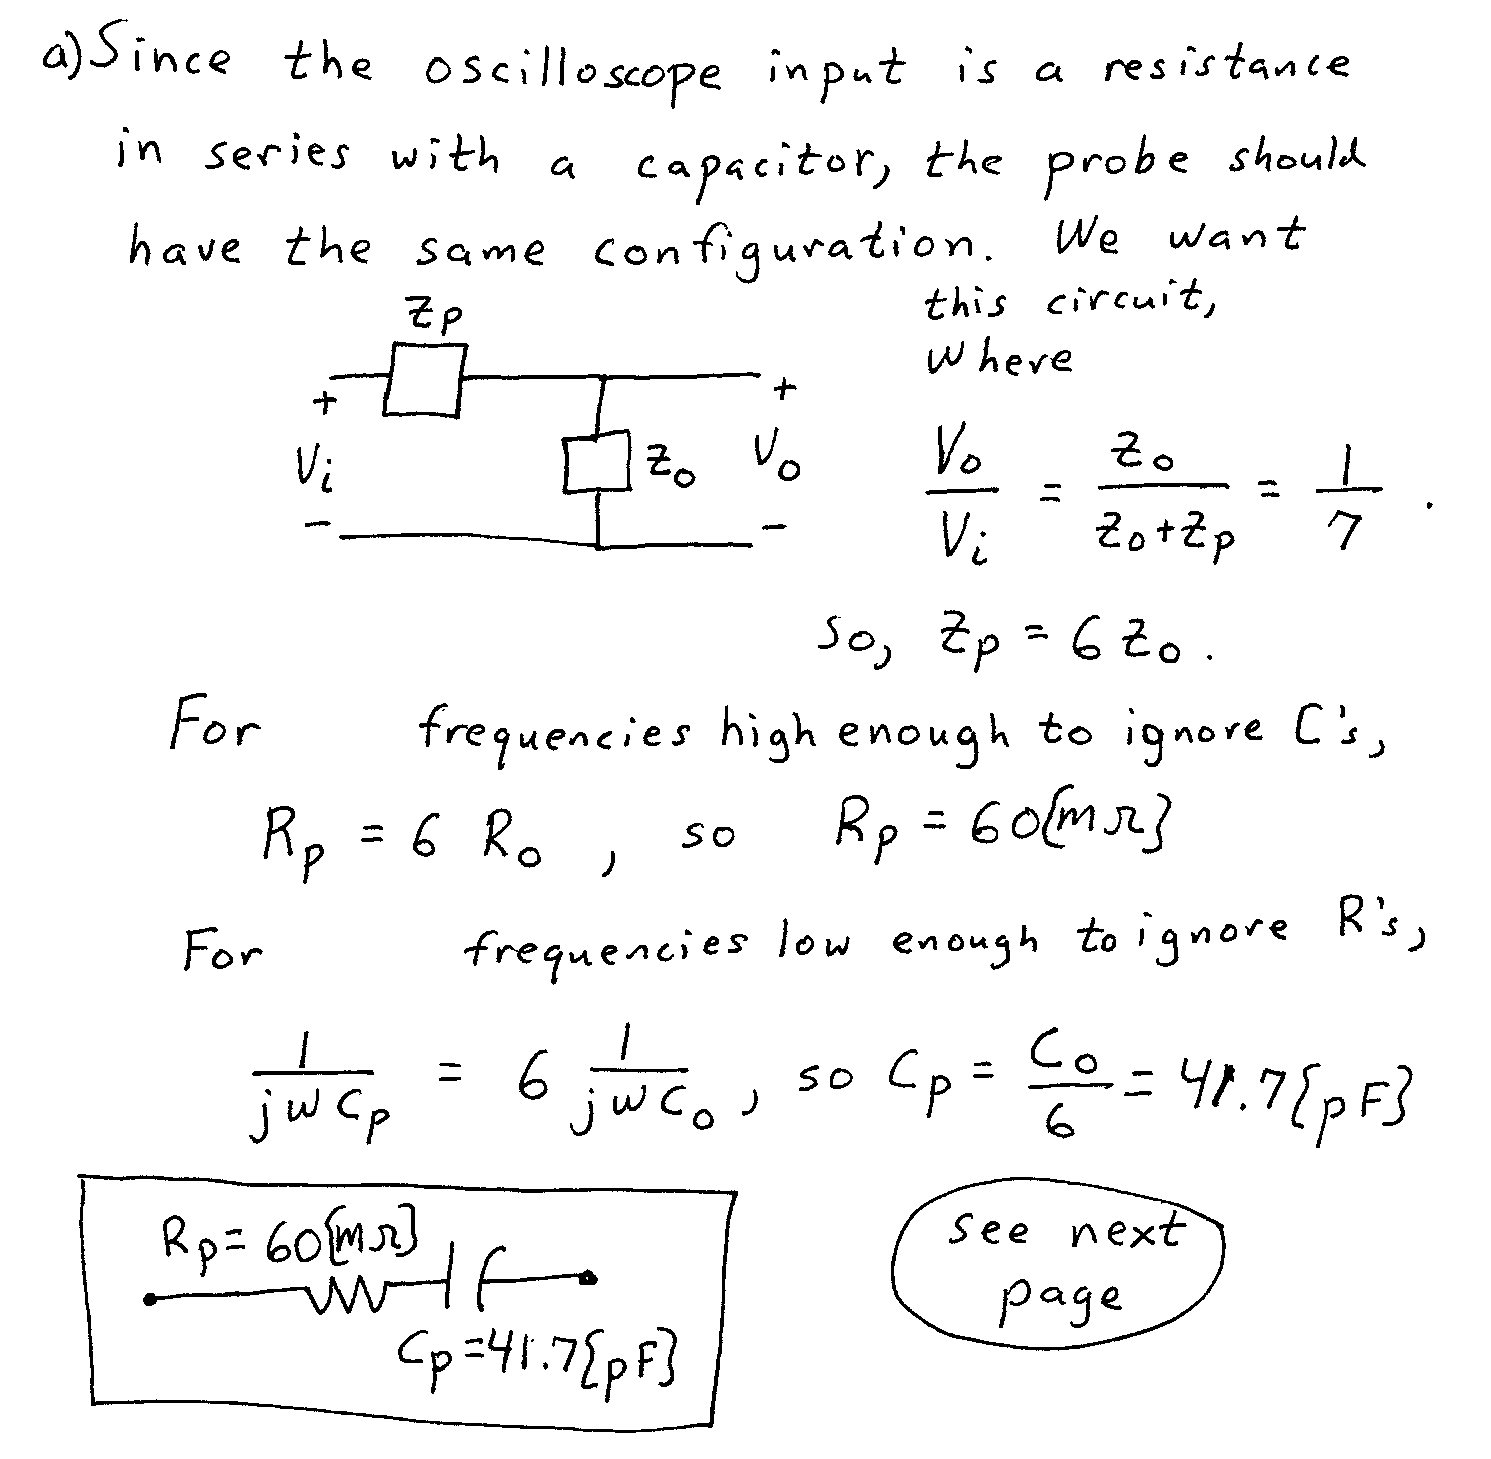 a) Since the oscilloscope input is a resistance
in series with a capacitor, the probe should
have the same configuration. We want
this circuit,
where
Zp
+ Vi -
Zo
+ Vo -
Vo/Vi = Zo/(Zo+Zp) = 1/7 .
so, Zp = 6 Zo .
For frequencies high enough to ignore C's,
Rp = 6 Ro , so Rp = 60[MΩ]
For frequencies low enough to ignore R's,
1/(jωCp) = 6 1/(jωCo) , so Cp = Co/6 = 41.7[pF]
Rp = 60[MΩ]
Cp = 41.7[pF]
see next
page